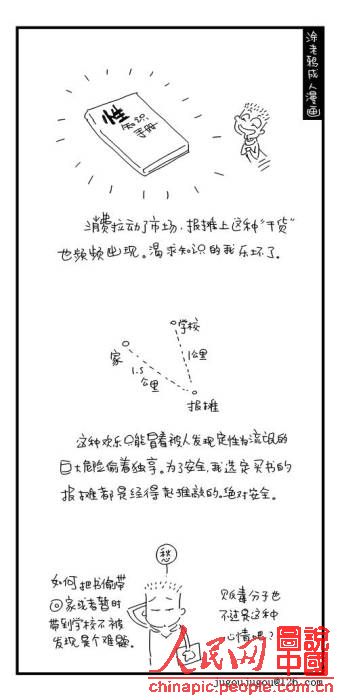 涂老鸦成人漫画
性
知识
手册
消费拉动了市场，报摊上这种“干货”
也频频出现。渴求知识的我乐坏了。
学校
家
1公里
1.5
公里
报摊
这种欢乐只能冒着被人发现定性为流氓的
巨大危险偷着独享。为了安全，我选定买书的
报摊都是经得起推敲的。绝对安全。
愁
如何把书偷带
回家或者暂时
带到学校不被
发现是个难题。
贩毒分子也
不过是这种
心情吧？
人民网
圖說中國
jugoujugou@126.com
chinapic.people.com.cn